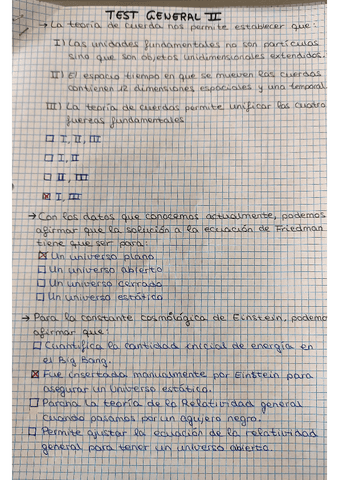 TEST GENERAL II
→ La teoría de cuerda nos permite establecer que:
I) Las unidades fundamentales no son partículas
sino que son objetos unidimensionales extendidos.
II) El espacio tiempo en que se mueven las cuerdas
contienen 12 dimensiones espaciales y una temporal
III) La teoría de cuerdas permite unificar las cuatro
fuerzas fundamentales
☐ I, II, III
☐ I, II
☐ II, III
☒ I, III
→ Con los datos que conocemos actualmente, podemos
afirmar que la solución a la ecuación de Friedman
tiene que ser para:
☒ Un universo plano
☐ Un universo abierto
☐ Un universo cerrado
☐ Un universo estático
→ Para la constante cosmológica de Einstein, podemo
afirmar que:
☐ Cuantifica la cantidad inicial de energía en
el Big Bang.
☒ Fue insertada manualmente por Einstein para
asegurar un universo estático.
☐ Parcha la teoría de la Relatividad general
cuando pasamos por un agujero negro.
☐ Permite ajustar la ecuación de la relatividad
general para tener un universo abierto.